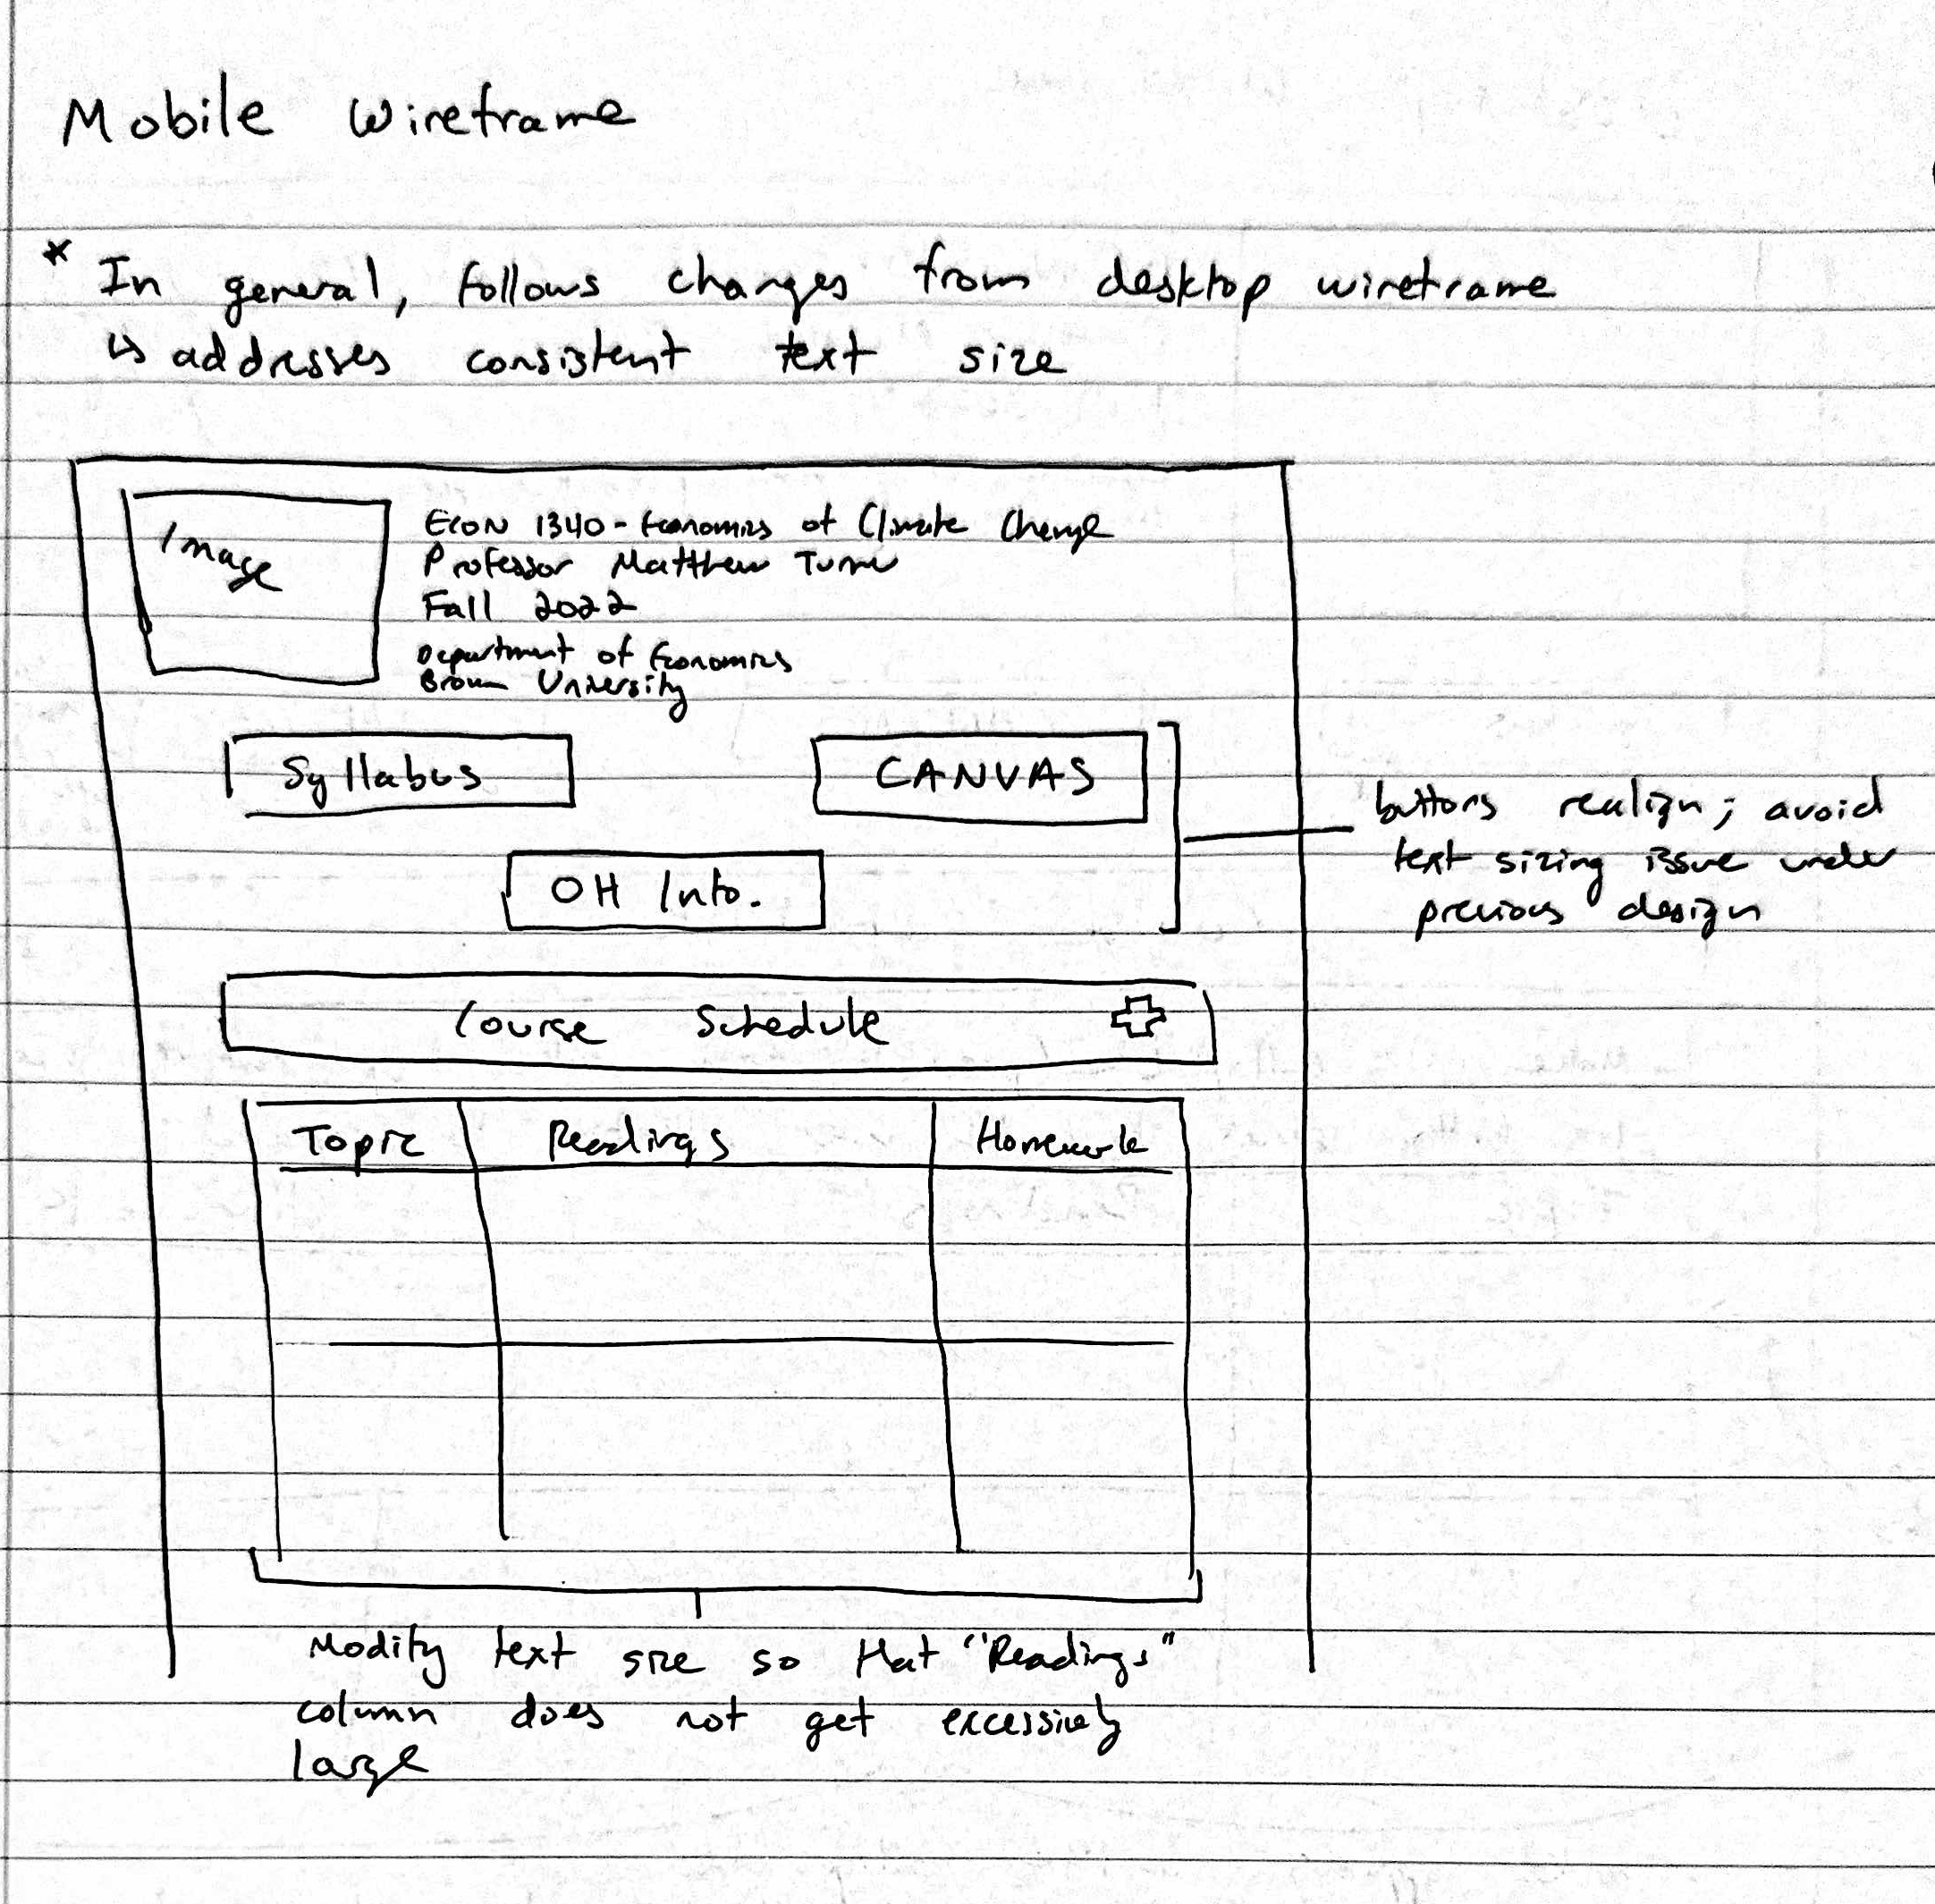 Mobile Wireframe
* In general, follows changes from desktop wireframe
↳ addresses consistent text size
Image
ECON 1340 - Economics of Climate Change
Professor Matthew Turner
Fall 2022
Department of Economics
Brown University
Syllabus
CANVAS
OH Info.
buttons realign; avoid
text sizing issue under
previous design
Course Schedule
Topic Readings Homework
Modify text size so that "Readings"
column does not get excessively
large